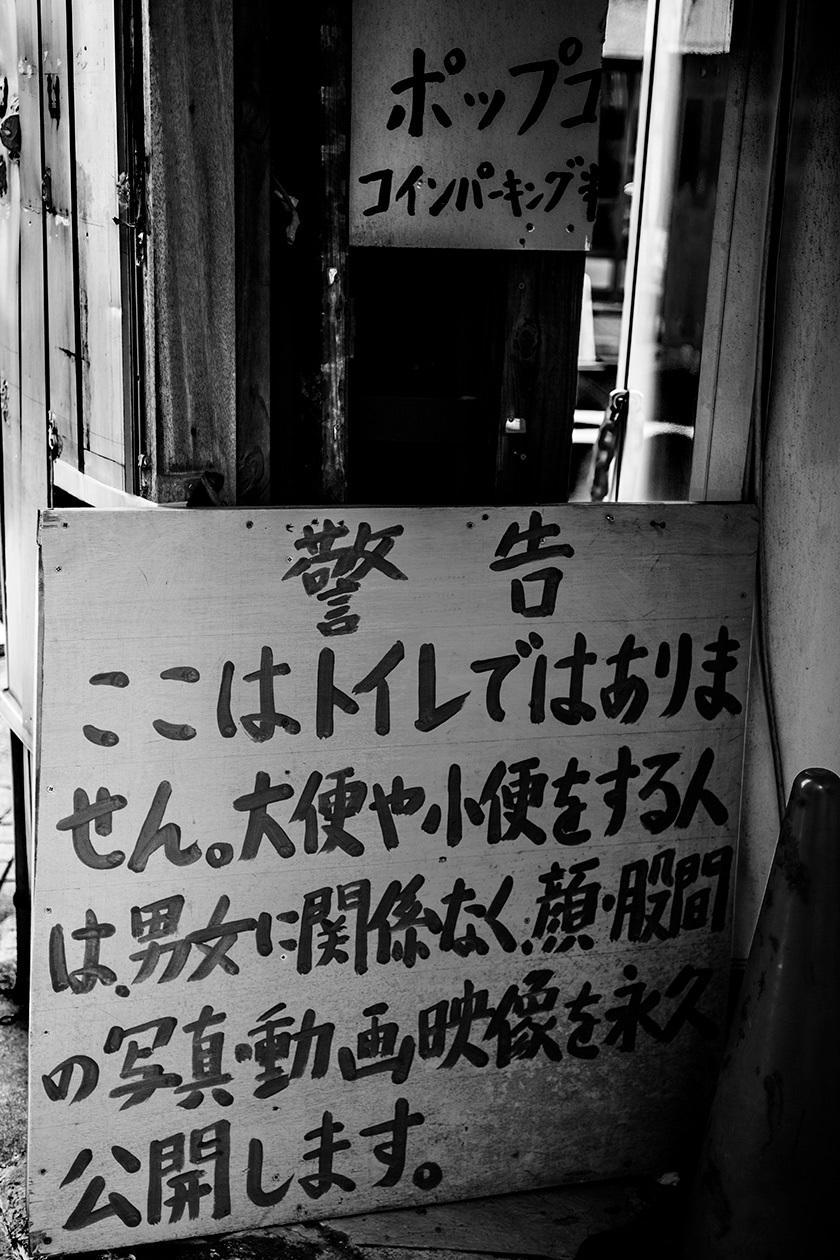 ポップコ
コインパーキング
警 告
ここはトイレではありま
せん。大便や小便をする人
は、男女に関係なく、顔・股間
の写真・動画映像を永久
公開します。